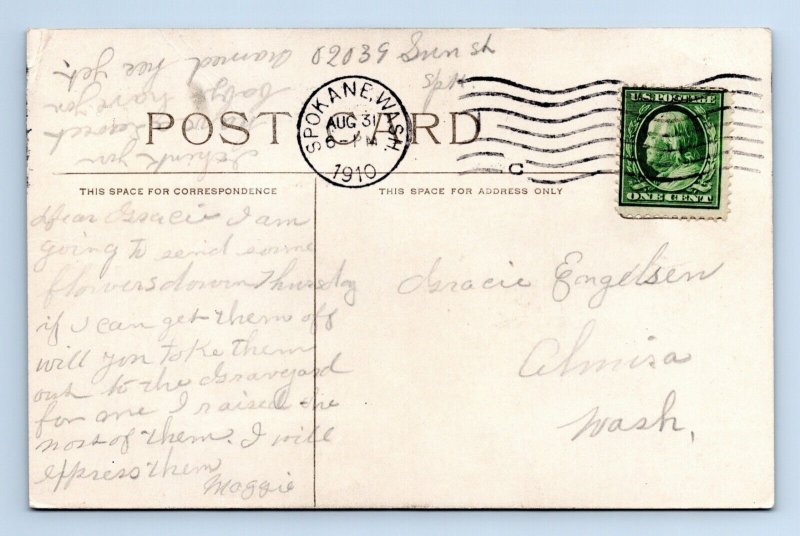 02039 Sun st
POST CARD
SPOKANE, WASH.
AUG 31
6-PM
1910
C
U.S. POSTAGE
ONE CENT
THIS SPACE FOR CORRESPONDENCE
THIS SPACE FOR ADDRESS ONLY
Dear Gracie I am
going to send some
flowers down Thursday
if I can get them off
will you take them
out to the Graveyard
for me I raised the
most of them. I will
express them
Maggie
Gracie Engelsen
Almira
Wash.
I think you
have a sweet
baby have you
named her yet.